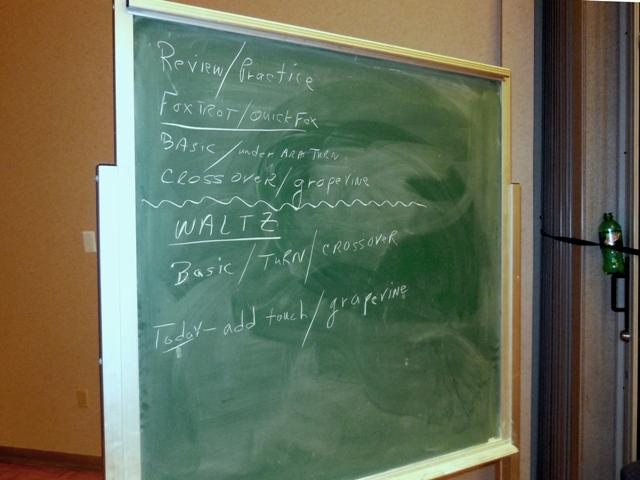 Review/Practice
FoxTROT/QuickFox
BASIC/under ARM TURN
CROSSOVER/grapevine
WALTZ
Basic/TURN/CROSSOVER
Today- add touch/grapevine